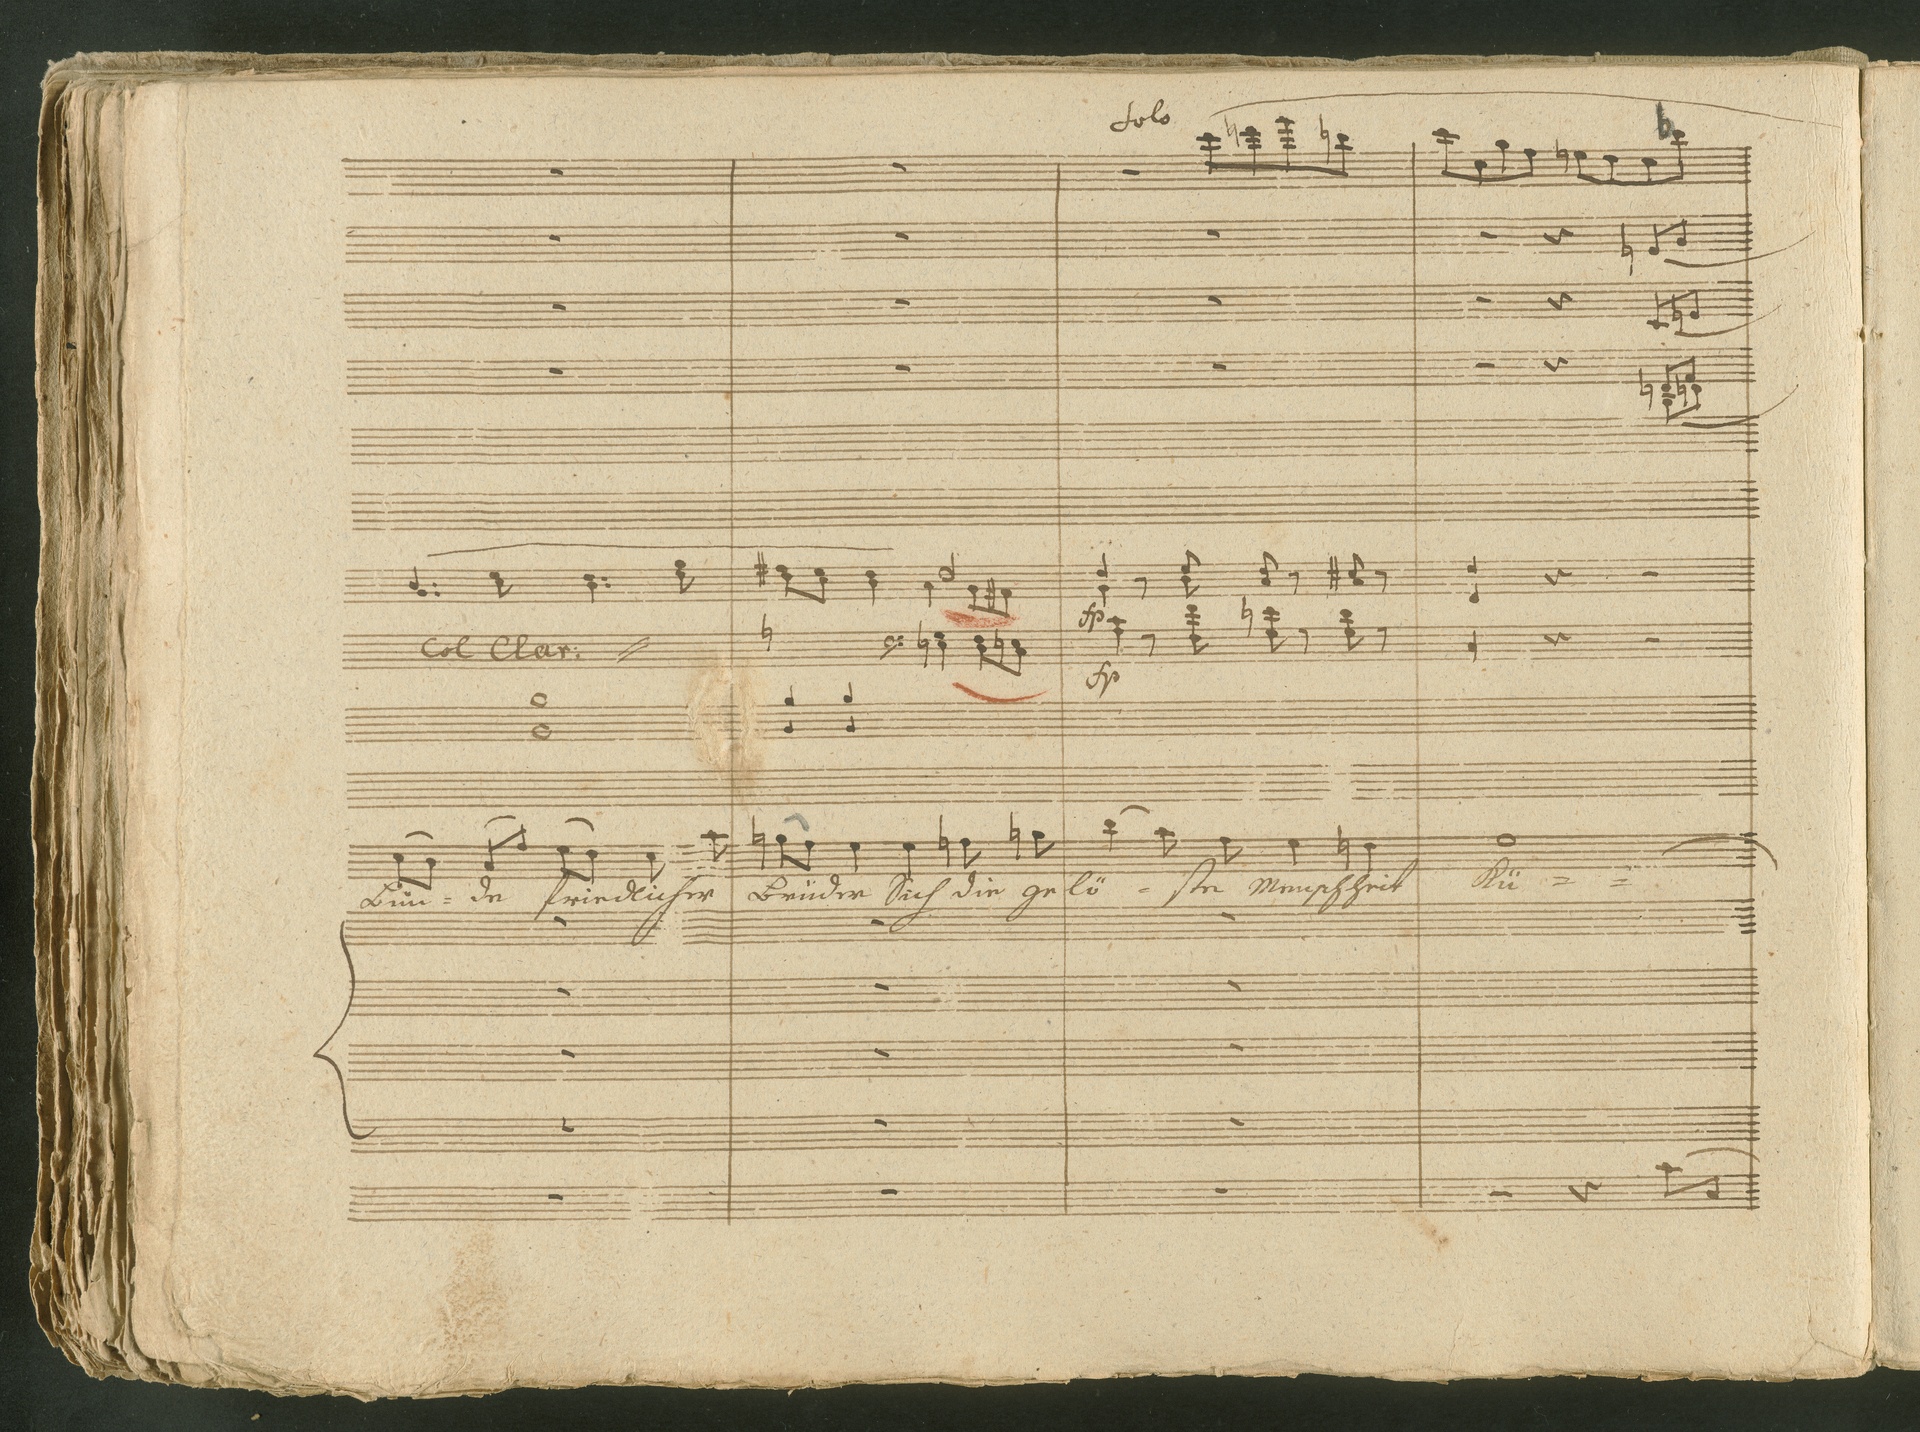 Solo
Col Clar:
fp
fp
Bün = de friedlicher Brüder Sich die gelö - ste Menschheit Kü = =